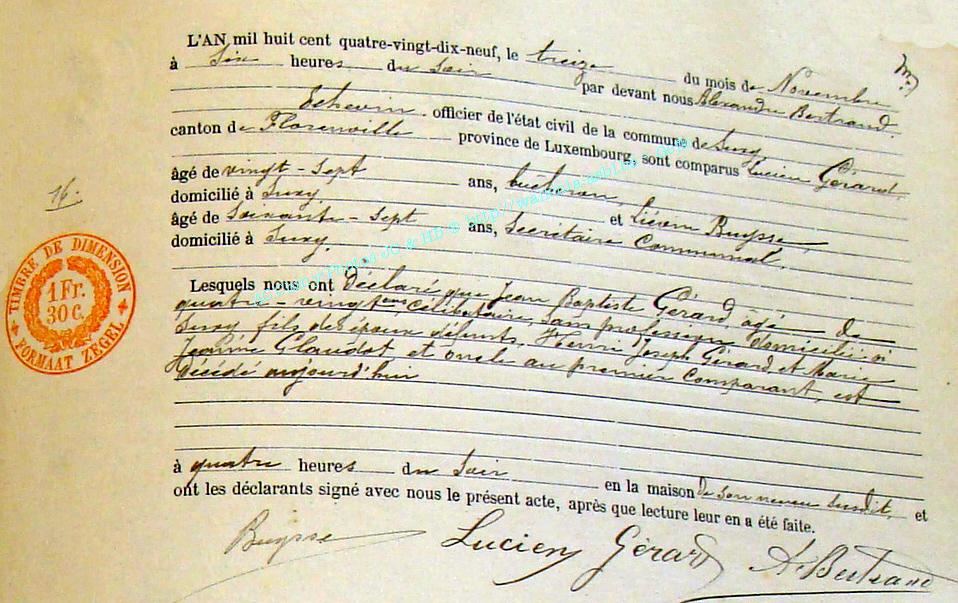 L'AN mil huit cent quatre-vingt-dix-neuf, le treize du mois de Novembre
à six heures du soir par devant nous Alexandre Bertrand,
Echevin, officier de l'état civil de la commune de Suxy
canton de Florenville province de Luxembourg, sont comparus Lucien Gérard,
âgé de vingt-sept ans, bûcheron,
domicilié à Suxy, et Liévin Buysse
âgé de Soixante-Sept ans, Secrétaire Communal,
domicilié à Suxy.
16.
TIMBRE DE DIMENSION
1 Fr.
30 C.
FORMAAT ZEGEL
Lesquels nous ont Déclaré que Jean Baptiste Gérard, âgé de
quatre-vingt ans, célibataire, sans profession, domicilié à
Suxy, fils des époux défunts, Henri Joseph Gérard et Marie
Jeanne Claudot, et oncle au premier comparant, est
décédé aujourd'hui
à quatre heures du soir en la maison de son neveu susdit, et
ont les déclarants signé avec nous le présent acte, après que lecture leur en a été faite.
Buysse Lucien Gérard A. Bertrand